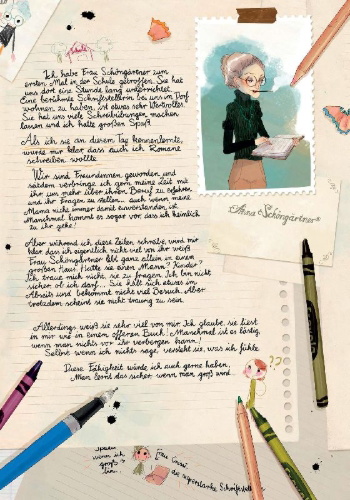 Ich habe Frau Schöngärtner zum
ersten Mal in der Schule getroffen. Sie hat
uns dort eine Stunde lang unterrichtet.
Eine berühmte Schriftstellerin bei uns im Dorf
wohnen zu haben, ist etwas sehr Wertvolles.
Sie hat uns viele Schreibübungen machen
lassen und ich hatte großen Spaß.
Als ich sie an diesem Tag kennenlernte,
wurde mir klar dass euch ich Romane
schreiben wollte.
Wir sind Freundinnen geworden, und
seitdem verbringe ich gern meine Zeit mit
ihr, um mehr über ihren Beruf zu erfahren
und ihr Fragen zu stellen... auch wenn meine
Mama nicht immer damit einverstanden ist.
Manchmal kommt es sogar vor, dass ich heimlich
zu ihr gehe!
Anna Schöngärtner
Aber während ich diese Zeilen schreibe, wird mir
klar dass ich eigentlich nicht viel von ihr weiß.
Frau Schöngärtner lebt ganz allein in einem
großen Haus. Hatte sie einen Mann? Kinder?
Ich traue mich nicht, sie zu fragen. Ich bin nicht
sicher, ob ich darf... Sie hält sich etwas im
Abseits und bekommt nicht viel Besuch. Aber
trotzdem scheint sie nicht traurig zu sein.
Allerdings weiß sie sehr viel von mir. Ich glaube, sie liest
in mir wie in einem offenen Buch! Manchmal ist es lästig,
wenn man nichts vor ihr verbergen kann!
Selbst wenn ich nichts sage, versteht sie, was ich fühle.
??
Diese Fähigkeit würde ich auch gerne haben.
Man lernt das sicher, wenn man groß wird.
wenn ich
groß
bin..
Frau
die Schriftstell